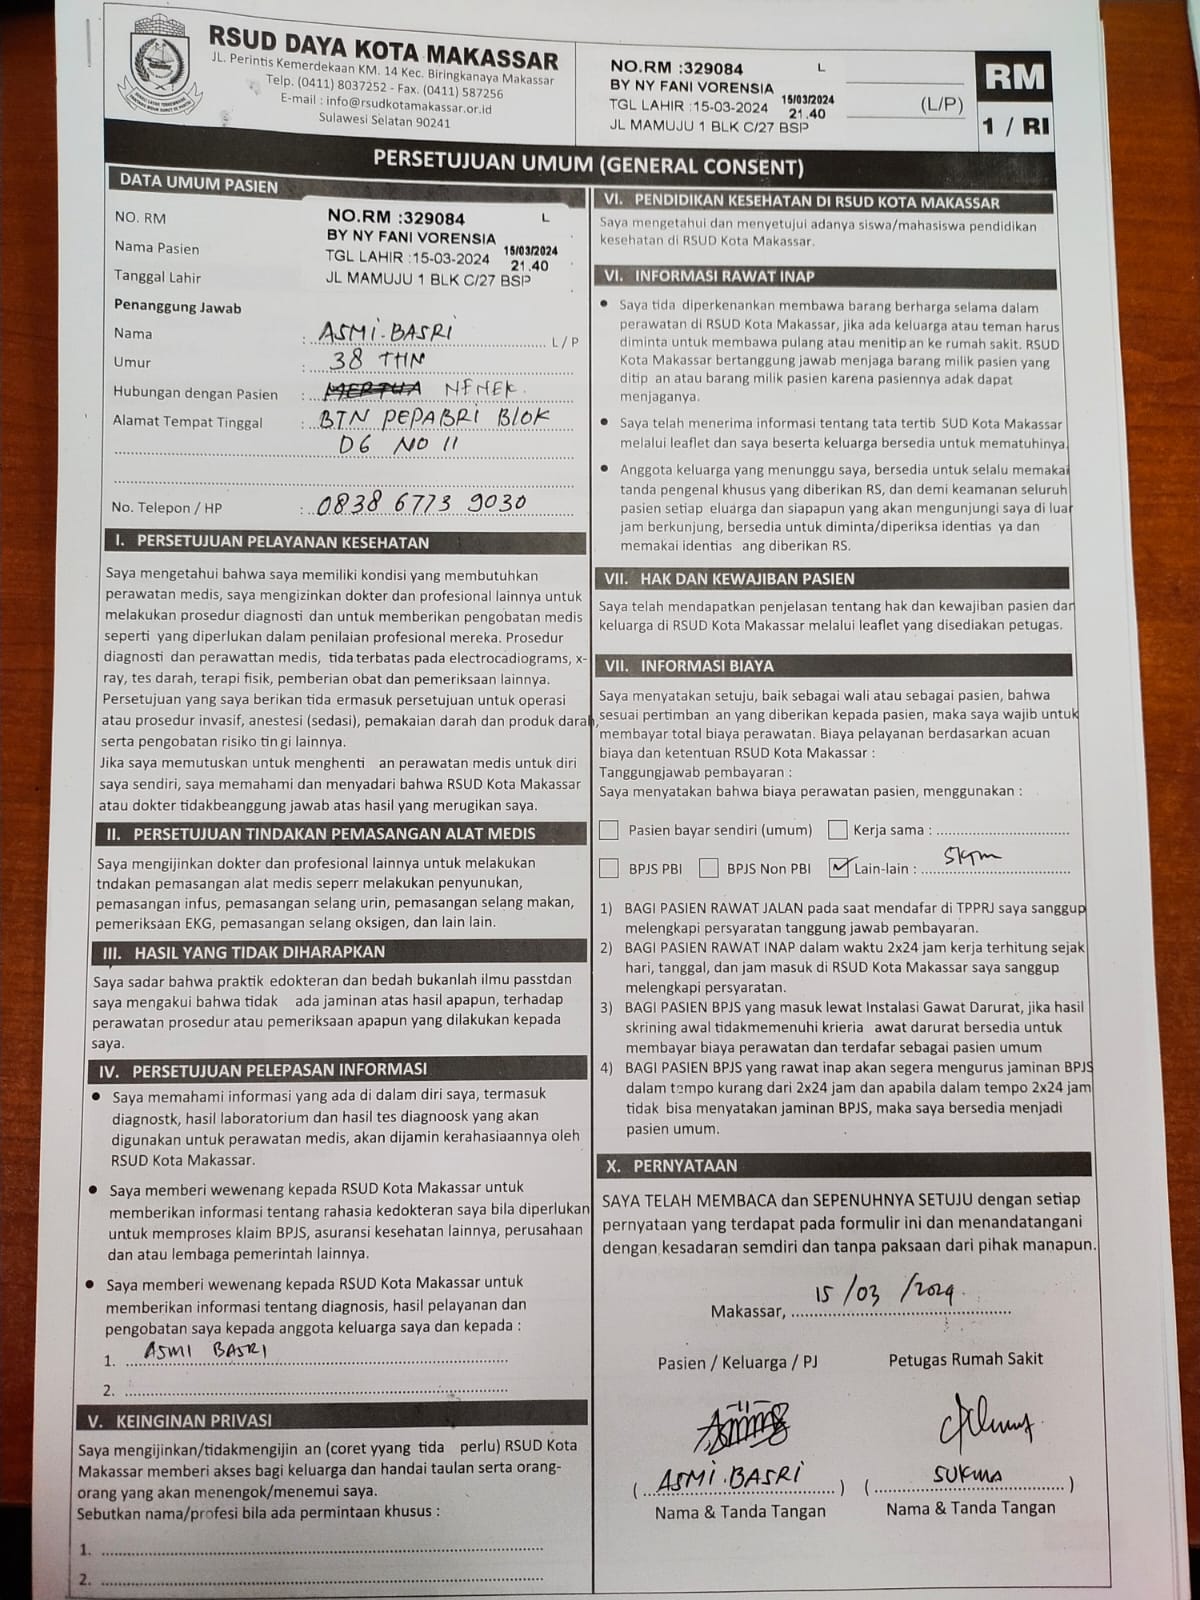 RSUD DAYA KOTA MAKASSAR
JL. Perintis Kemerdekaan KM. 14 Kec. Biringkanaya Makassar
Telp. (0411) 8037252 - Fax. (0411) 587256
E-mail : info@rsudkotamakassar.or.id
Sulawesi Selatan 90241
NO.RM :329084 L
BY NY FANI VORENSIA
TGL LAHIR :15-03-2024 15/03/2024 21.40
JL MAMUJU 1 BLK C/27 BSP
(L/P)
RM
1 / RI
PERSETUJUAN UMUM (GENERAL CONSENT)
DATA UMUM PASIEN
NO. RM
Nama Pasien
Tanggal Lahir
NO.RM :329084 L
BY NY FANI VORENSIA
TGL LAHIR :15-03-2024 15/03/2024 21.40
JL MAMUJU 1 BLK C/27 BSP
Penanggung Jawab
Nama : ASMI.BASRI L / P
Umur : 38 THN
Hubungan dengan Pasien : MERTUA NENEK.
Alamat Tempat Tinggal : BTN PEPABRI BLOK
D6 NO 11
No. Telepon / HP : 0838 6773 9030
I. PERSETUJUAN PELAYANAN KESEHATAN
Saya mengetahui bahwa saya memiliki kondisi yang membutuhkan
perawatan medis, saya mengizinkan dokter dan profesional lainnya untuk
melakukan prosedur diagnosti dan untuk memberikan pengobatan medis
seperti yang diperlukan dalam penilaian profesional mereka. Prosedur
diagnosti dan perawattan medis, tida terbatas pada electrocadiograms, x-
ray, tes darah, terapi fisik, pemberian obat dan pemeriksaan lainnya.
Persetujuan yang saya berikan tida ermasuk persetujuan untuk operasi
atau prosedur invasif, anestesi (sedasi), pemakaian darah dan produk darah,
serta pengobatan risiko tin gi lainnya.
Jika saya memutuskan untuk menghenti an perawatan medis untuk diri
saya sendiri, saya memahami dan menyadari bahwa RSUD Kota Makassar
atau dokter tidakbeanggung jawab atas hasil yang merugikan saya.
II. PERSETUJUAN TINDAKAN PEMASANGAN ALAT MEDIS
Saya mengijinkan dokter dan profesional lainnya untuk melakukan
tndakan pemasangan alat medis seperr melakukan penyunukan,
pemasangan infus, pemasangan selang urin, pemasangan selang makan,
pemeriksaan EKG, pemasangan selang oksigen, dan lain lain.
III. HASIL YANG TIDAK DIHARAPKAN
Saya sadar bahwa praktik edokteran dan bedah bukanlah ilmu passtdan
saya mengakui bahwa tidak ada jaminan atas hasil apapun, terhadap
perawatan prosedur atau pemeriksaan apapun yang dilakukan kepada
saya.
IV. PERSETUJUAN PELEPASAN INFORMASI
• Saya memahami informasi yang ada di dalam diri saya, termasuk
diagnostk, hasil laboratorium dan hasil tes diagnoosk yang akan
digunakan untuk perawatan medis, akan dijamin kerahasiaannya oleh
RSUD Kota Makassar.
• Saya memberi wewenang kepada RSUD Kota Makassar untuk
memberikan informasi tentang rahasia kedokteran saya bila diperlukan
untuk memproses klaim BPJS, asuransi kesehatan lainnya, perusahaan
dan atau lembaga pemerintah lainnya.
• Saya memberi wewenang kepada RSUD Kota Makassar untuk
memberikan informasi tentang diagnosis, hasil pelayanan dan
pengobatan saya kepada anggota keluarga saya dan kepada :
1. ASMI BASRI
2.
V. KEINGINAN PRIVASI
Saya mengijinkan/tidakmengijin an (coret yyang tida perlu) RSUD Kota
Makassar memberi akses bagi keluarga dan handai taulan serta orang-
orang yang akan menengok/menemui saya.
Sebutkan nama/profesi bila ada permintaan khusus :
1.
2.
VI. PENDIDIKAN KESEHATAN DI RSUD KOTA MAKASSAR
Saya mengetahui dan menyetujui adanya siswa/mahasiswa pendidikan
kesehatan di RSUD Kota Makassar.
VI. INFORMASI RAWAT INAP
• Saya tida diperkenankan membawa barang berharga selama dalam
perawatan di RSUD Kota Makassar, jika ada keluarga atau teman harus
diminta untuk membawa pulang atau menitip an ke rumah sakit. RSUD
Kota Makassar bertanggung jawab menjaga barang milik pasien yang
ditip an atau barang milik pasien karena pasiennya adak dapat
menjaganya.
• Saya telah menerima informasi tentang tata tertib SUD Kota Makassar
melalui leaflet dan saya beserta keluarga bersedia untuk mematuhinya.
• Anggota keluarga yang menunggu saya, bersedia untuk selalu memakai
tanda pengenal khusus yang diberikan RS, dan demi keamanan seluruh
pasien setiap eluarga dan siapapun yang akan mengunjungi saya di luar
jam berkunjung, bersedia untuk diminta/diperiksa identias ya dan
memakai identias ang diberikan RS.
VII. HAK DAN KEWAJIBAN PASIEN
Saya telah mendapatkan penjelasan tentang hak dan kewajiban pasien dan
keluarga di RSUD Kota Makassar melalui leaflet yang disediakan petugas.
VII. INFORMASI BIAYA
Saya menyatakan setuju, baik sebagai wali atau sebagai pasien, bahwa
sesuai pertimban an yang diberikan kepada pasien, maka saya wajib untuk
membayar total biaya perawatan. Biaya pelayanan berdasarkan acuan
biaya dan ketentuan RSUD Kota Makassar :
Tanggungjawab pembayaran :
Saya menyatakan bahwa biaya perawatan pasien, menggunakan :
Pasien bayar sendiri (umum) Kerja sama :
BPJS PBI BPJS Non PBI ✓ Lain-lain : SKTM
1) BAGI PASIEN RAWAT JALAN pada saat mendafar di TPPRJ saya sanggup
melengkapi persyaratan tanggung jawab pembayaran.
2) BAGI PASIEN RAWAT INAP dalam waktu 2x24 jam kerja terhitung sejak
hari, tanggal, dan jam masuk di RSUD Kota Makassar saya sanggup
melengkapi persyaratan.
3) BAGI PASIEN BPJS yang masuk lewat Instalasi Gawat Darurat, jika hasil
skrining awal tidakmemenuhi krieria awat darurat bersedia untuk
membayar biaya perawatan dan terdafar sebagai pasien umum
4) BAGI PASIEN BPJS yang rawat inap akan segera mengurus jaminan BPJS
dalam tempo kurang dari 2x24 jam dan apabila dalam tempo 2x24 jam
tidak bisa menyatakan jaminan BPJS, maka saya bersedia menjadi
pasien umum.
X. PERNYATAAN
SAYA TELAH MEMBACA dan SEPENUHNYA SETUJU dengan setiap
pernyataan yang terdapat pada formulir ini dan menandatangani
dengan kesadaran semdiri dan tanpa paksaan dari pihak manapun.
Makassar, 15 /03 /2024.
Pasien / Keluarga / PJ Petugas Rumah Sakit
( ASMI.BASRI ) ( SUKMA )
Nama & Tanda Tangan Nama & Tanda Tangan